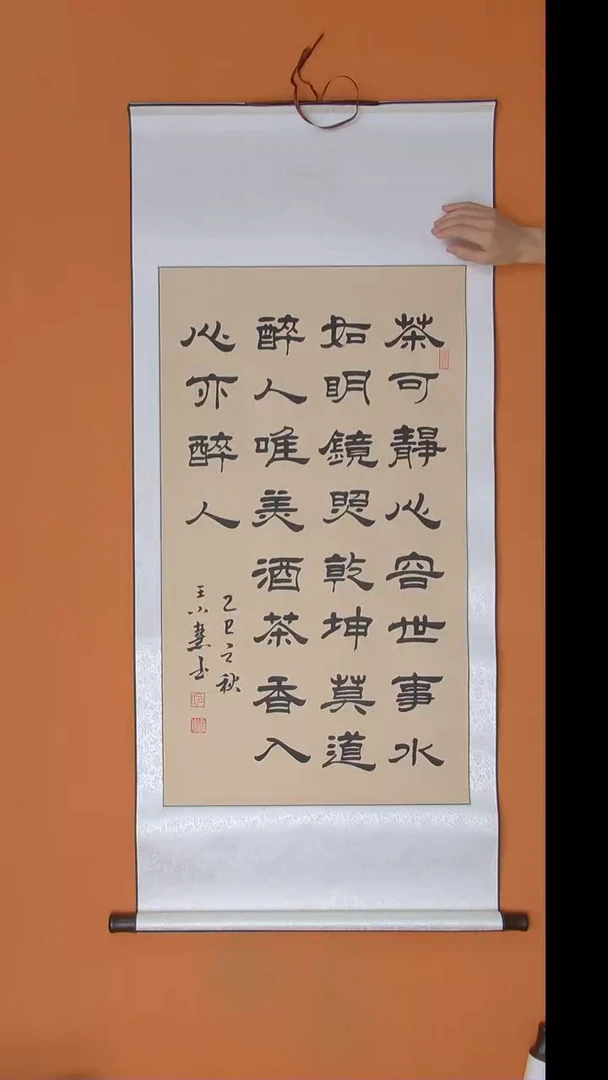 茶可靜心容世事水
如明鏡照乾坤莫道
醉人唯美酒茶香入
心亦醉人
乙巳之秋
王小慧书